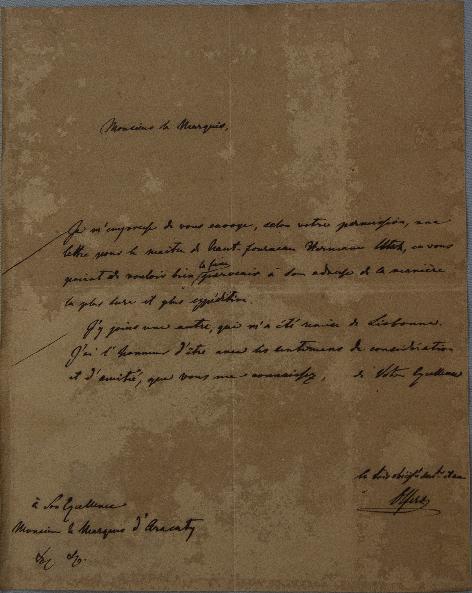 Monsieur le Marquis,
Je m'empresse de vous envoyer, selon votre permission, une
lettre pour le maitre de haut-fourneau Hermann Utsch, en vous
priant de vouloir bien la faire parvenir à son adresse de la manière
la plus sure et plus expéditive.
J'y joins une autre, que m'a été remise de Lisbonne.
J'ai l'honneur d'être avec les sentimens de considération
et d'amitié, que vous me connaissez, de Votre Excellence
le très obeisst
à Son Excellence
Monsieur le Marquis d'Aracaty